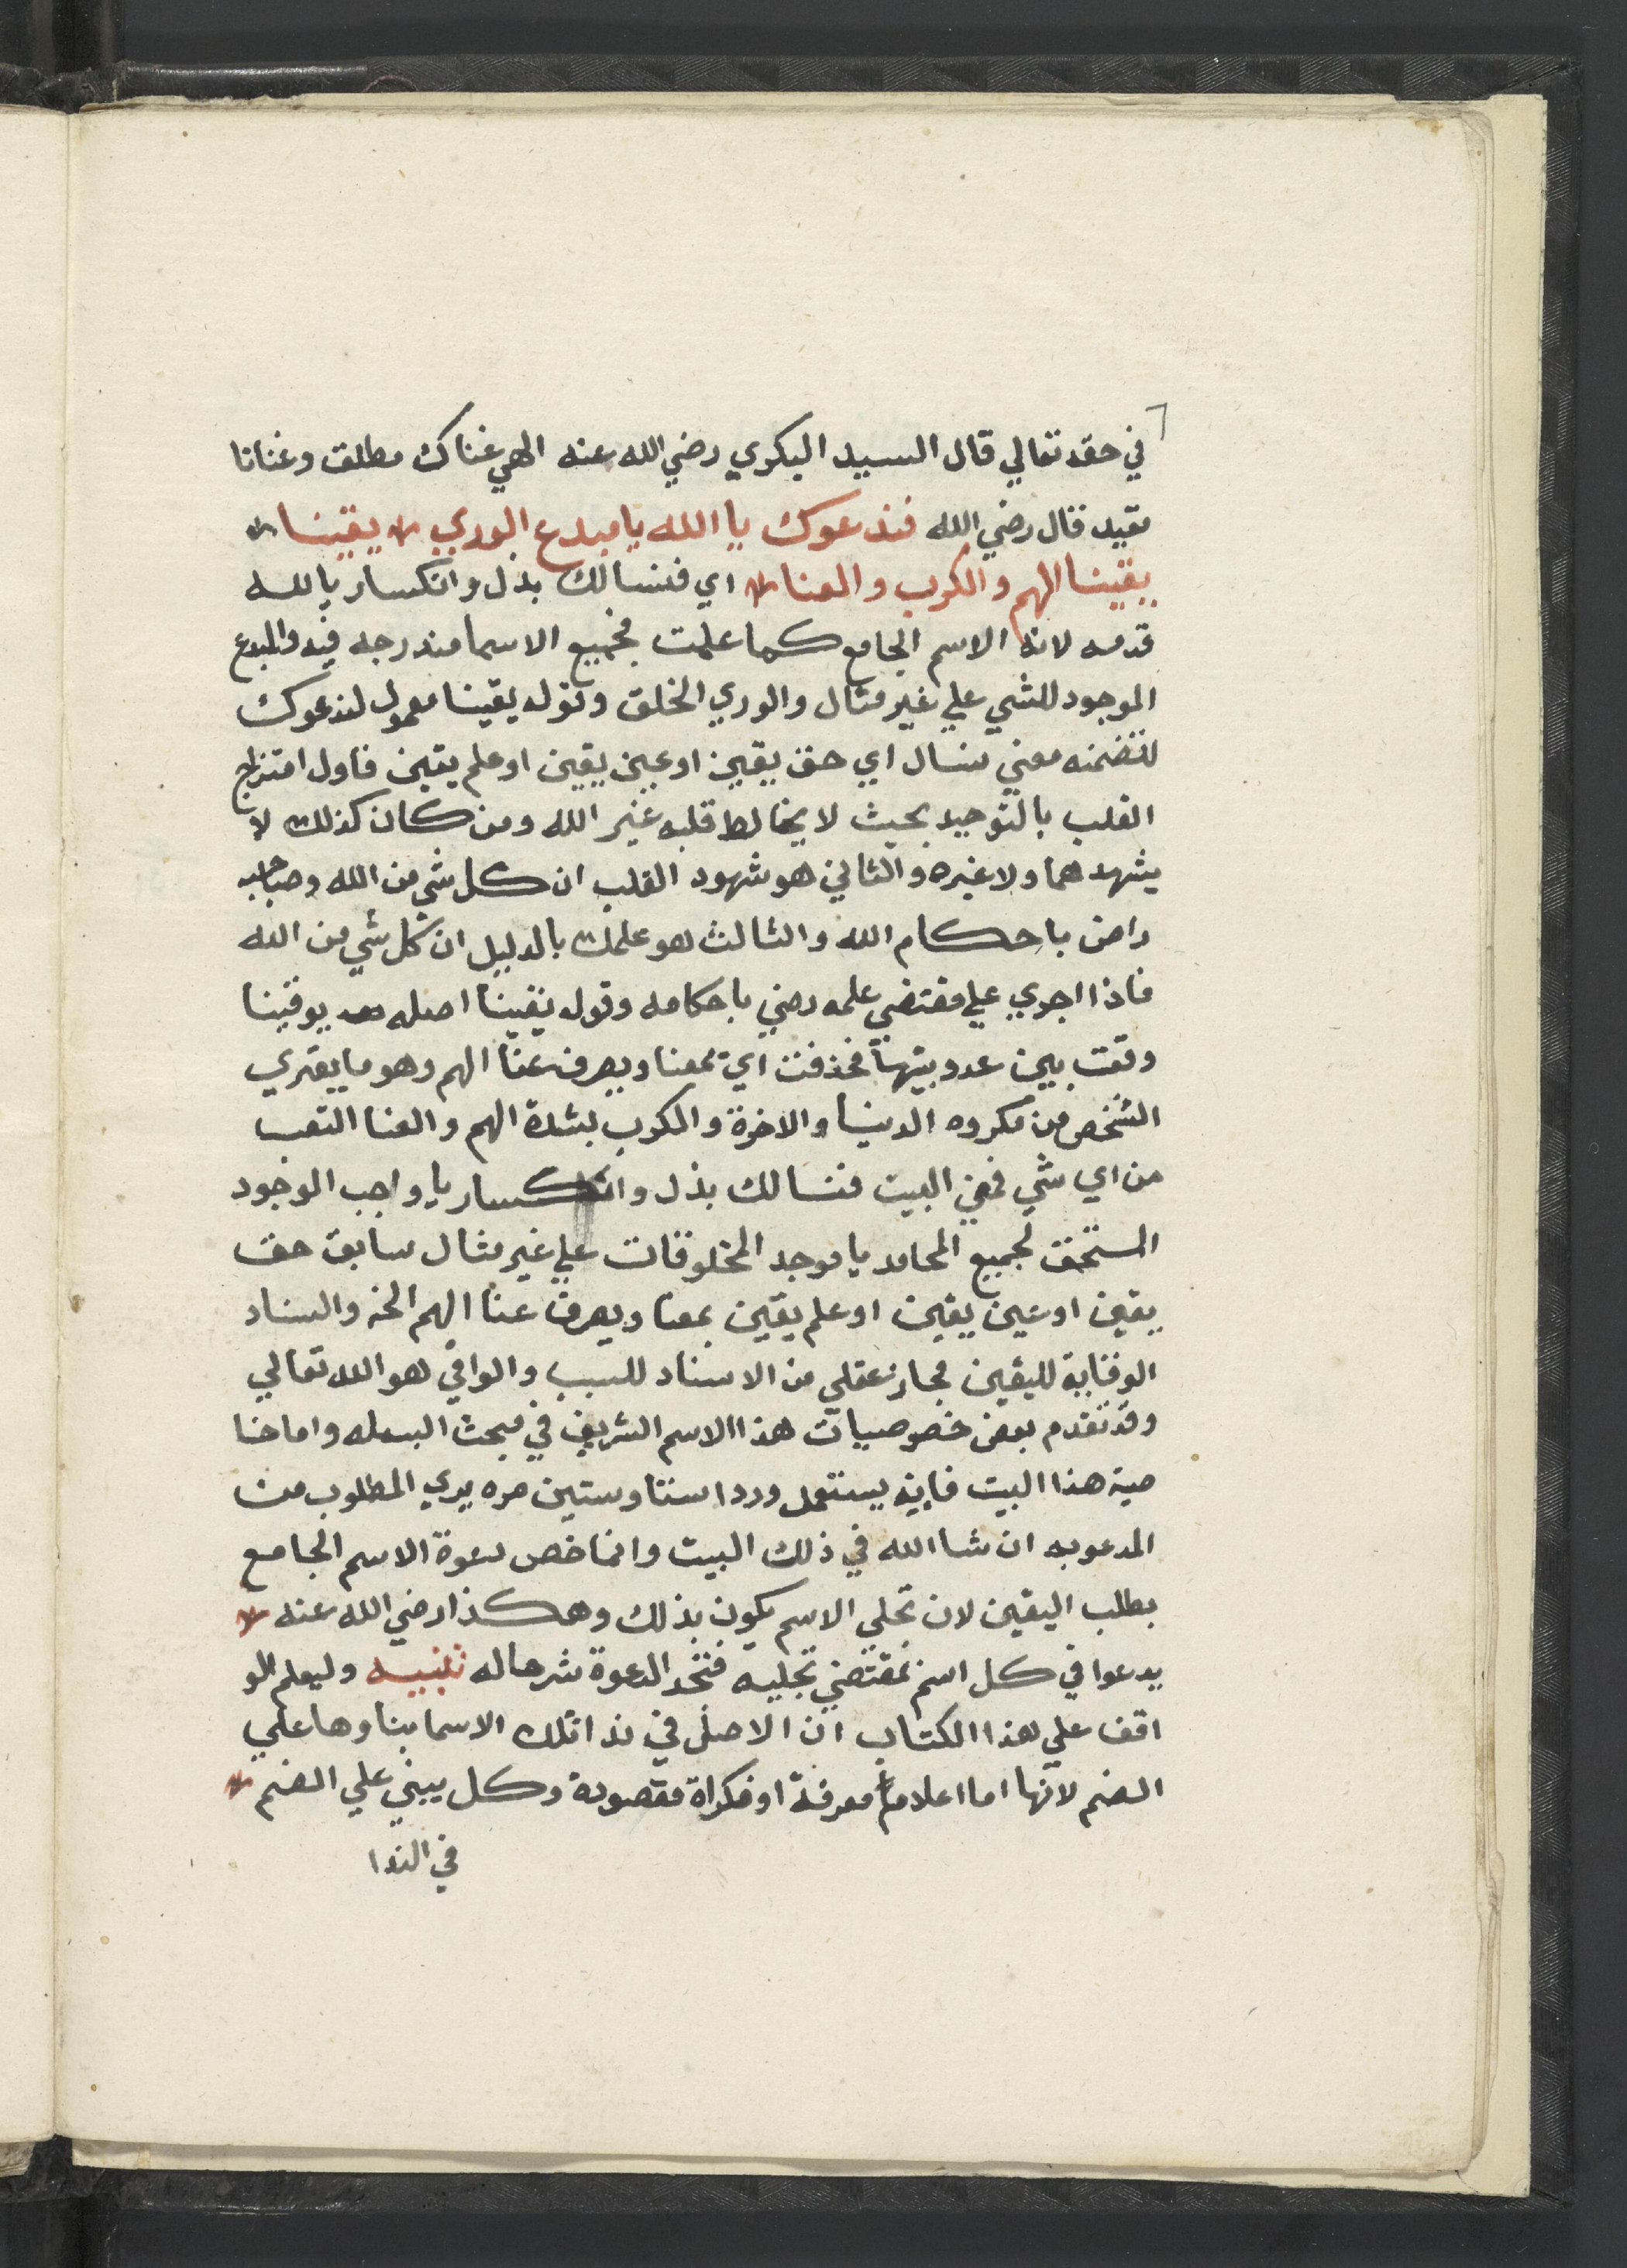 في حقه تعالي قال السيد البكري رضي الله عنه الهي غناك مطلق وغنانا
مقيد قال رضي الله فندعوك يا الله يا مبدع الوري يقينا
يقينا الهم والكرب والعنا اي فنسالك بذل وانكسار يا لله
قدمه لانه الاسم الجامع كما علمت فجميع الاسما مندرجه فيه والمبدع
الموجود للشي علي غير مثال والوري الخلق وقوله يقينا معمول لندعوك
لتضمنه معني نسال اي حق يقين او عين يقين او علم يقين فاول امتزاج
القلب بالتوحيد بحيث لا يخالط قلبه غير الله ومن كان كذلك لا
يشهد هما ولا غيره والثاني هو شهود القلب ان كل شي من الله وصاحبه
راض باحكام الله والثالث هو علمك بالدليل ان كل شي من الله
فاذا اجري علي مقتضي علمه رضي باحكامه وقوله يقينا اصله يوقينا
وقعت بين عدوتيها فحذفت اي يمعنا ويصرف عنا الهم وهو ما يعتري
الشخص من مكروه الدنيا والاخرة والكرب بشدة الهم والعنا التعب
من اي شي فمعني البيت فنسالك بذل وانكسار يا واجب الوجود
المستحق لجميع المحامد يا موجد المخلوقات علي غير مثال سابق حق
يقين او عين يقين او علم يقين يمعنا ويصرف عنا الهم الخ والسناد
الوقاية لليقين مجاز عقلي من الاسناد للسبب والواقي هو الله تعالي
وقد تقدم بعض خصوصيات هذا الاسم الشريف في مبحث البسمله واما خا
صية هذا البيت فاينه يستعمل وردا ستا وستين مره يري المطلوب من
المدعو به ان شا الله في ذلك البيت وانما خص دعوة الاسم الجامع
بطلب اليقين لان تجلي الاسم يكون بذلك وهكذا رضي الله عنه
يدعوا في كل اسم بمقتضي تجليه فتجد الدعوة شرحا له تنبيه وليعلم الو
اقف علي هذا الكتاب ان الاصل في ندا تلك الاسما بناوها علي
الضم لانها اما اعلاما معرفة او نكراة مقصودة وكل يبني علي الضم
في الندا